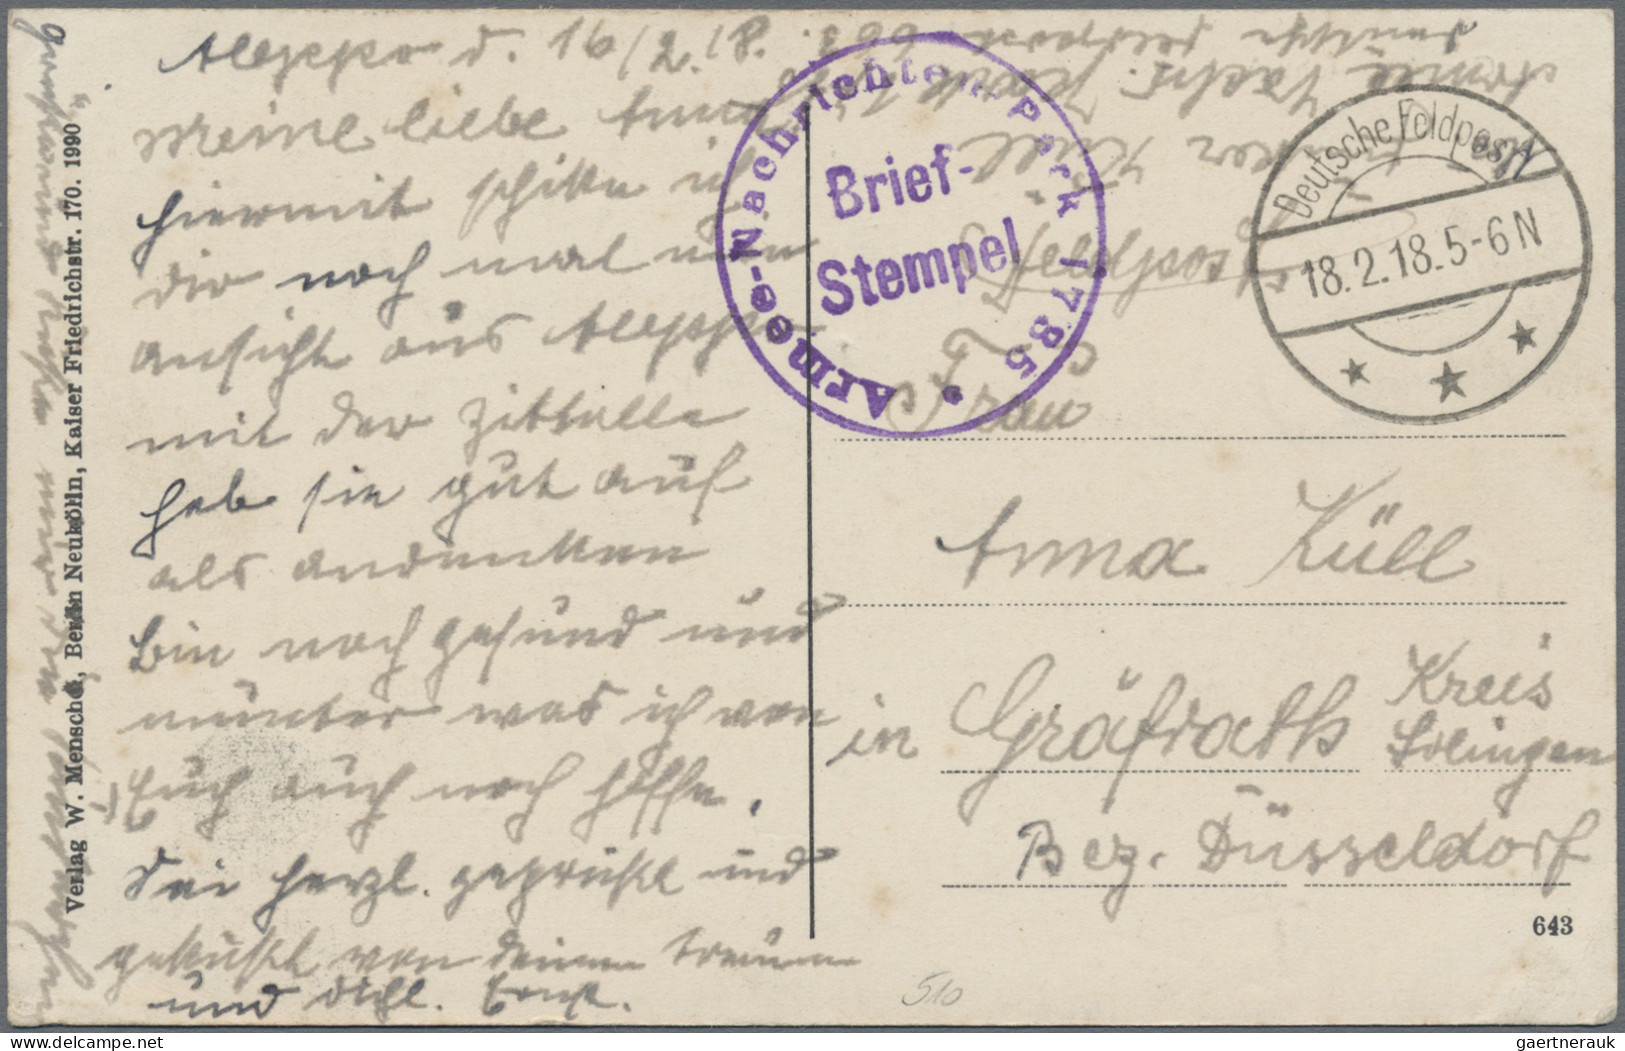 Aleppo d. 16/2.18.
Meine liebe Anna
hiermit schike ich
dir noch mal eine
ansicht aus Aleppo
mit der Zittalle
heb sie gut auf
als andenken
Bin noch gesund und
munter was ich von
Euch auch noch hoffe.
Sei herzl. gegrüßt und
geküßt von deinem treuen
und dichl. Ernst.
Verlag W. Mensche, Berlin Neukölln, Kaiser Friedrichstr. 170. 1990
Armee-Nachrichten-Park 1785
Brief-
Stempel
Deutsche Feldpost
18.2.18.5-6N
Küll
Feldpost
Frau
Anna Küll
in Gräfrath Kreis
Solingen
Bez. Düsseldorf
643
510
gaertnerauk